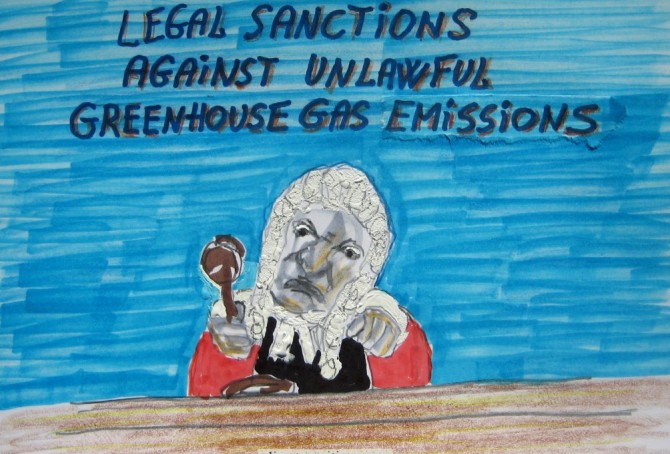 LEGAL SANCTIONS
AGAINST UNLAWFUL
GREENHOUSE GAS EMISSIONS